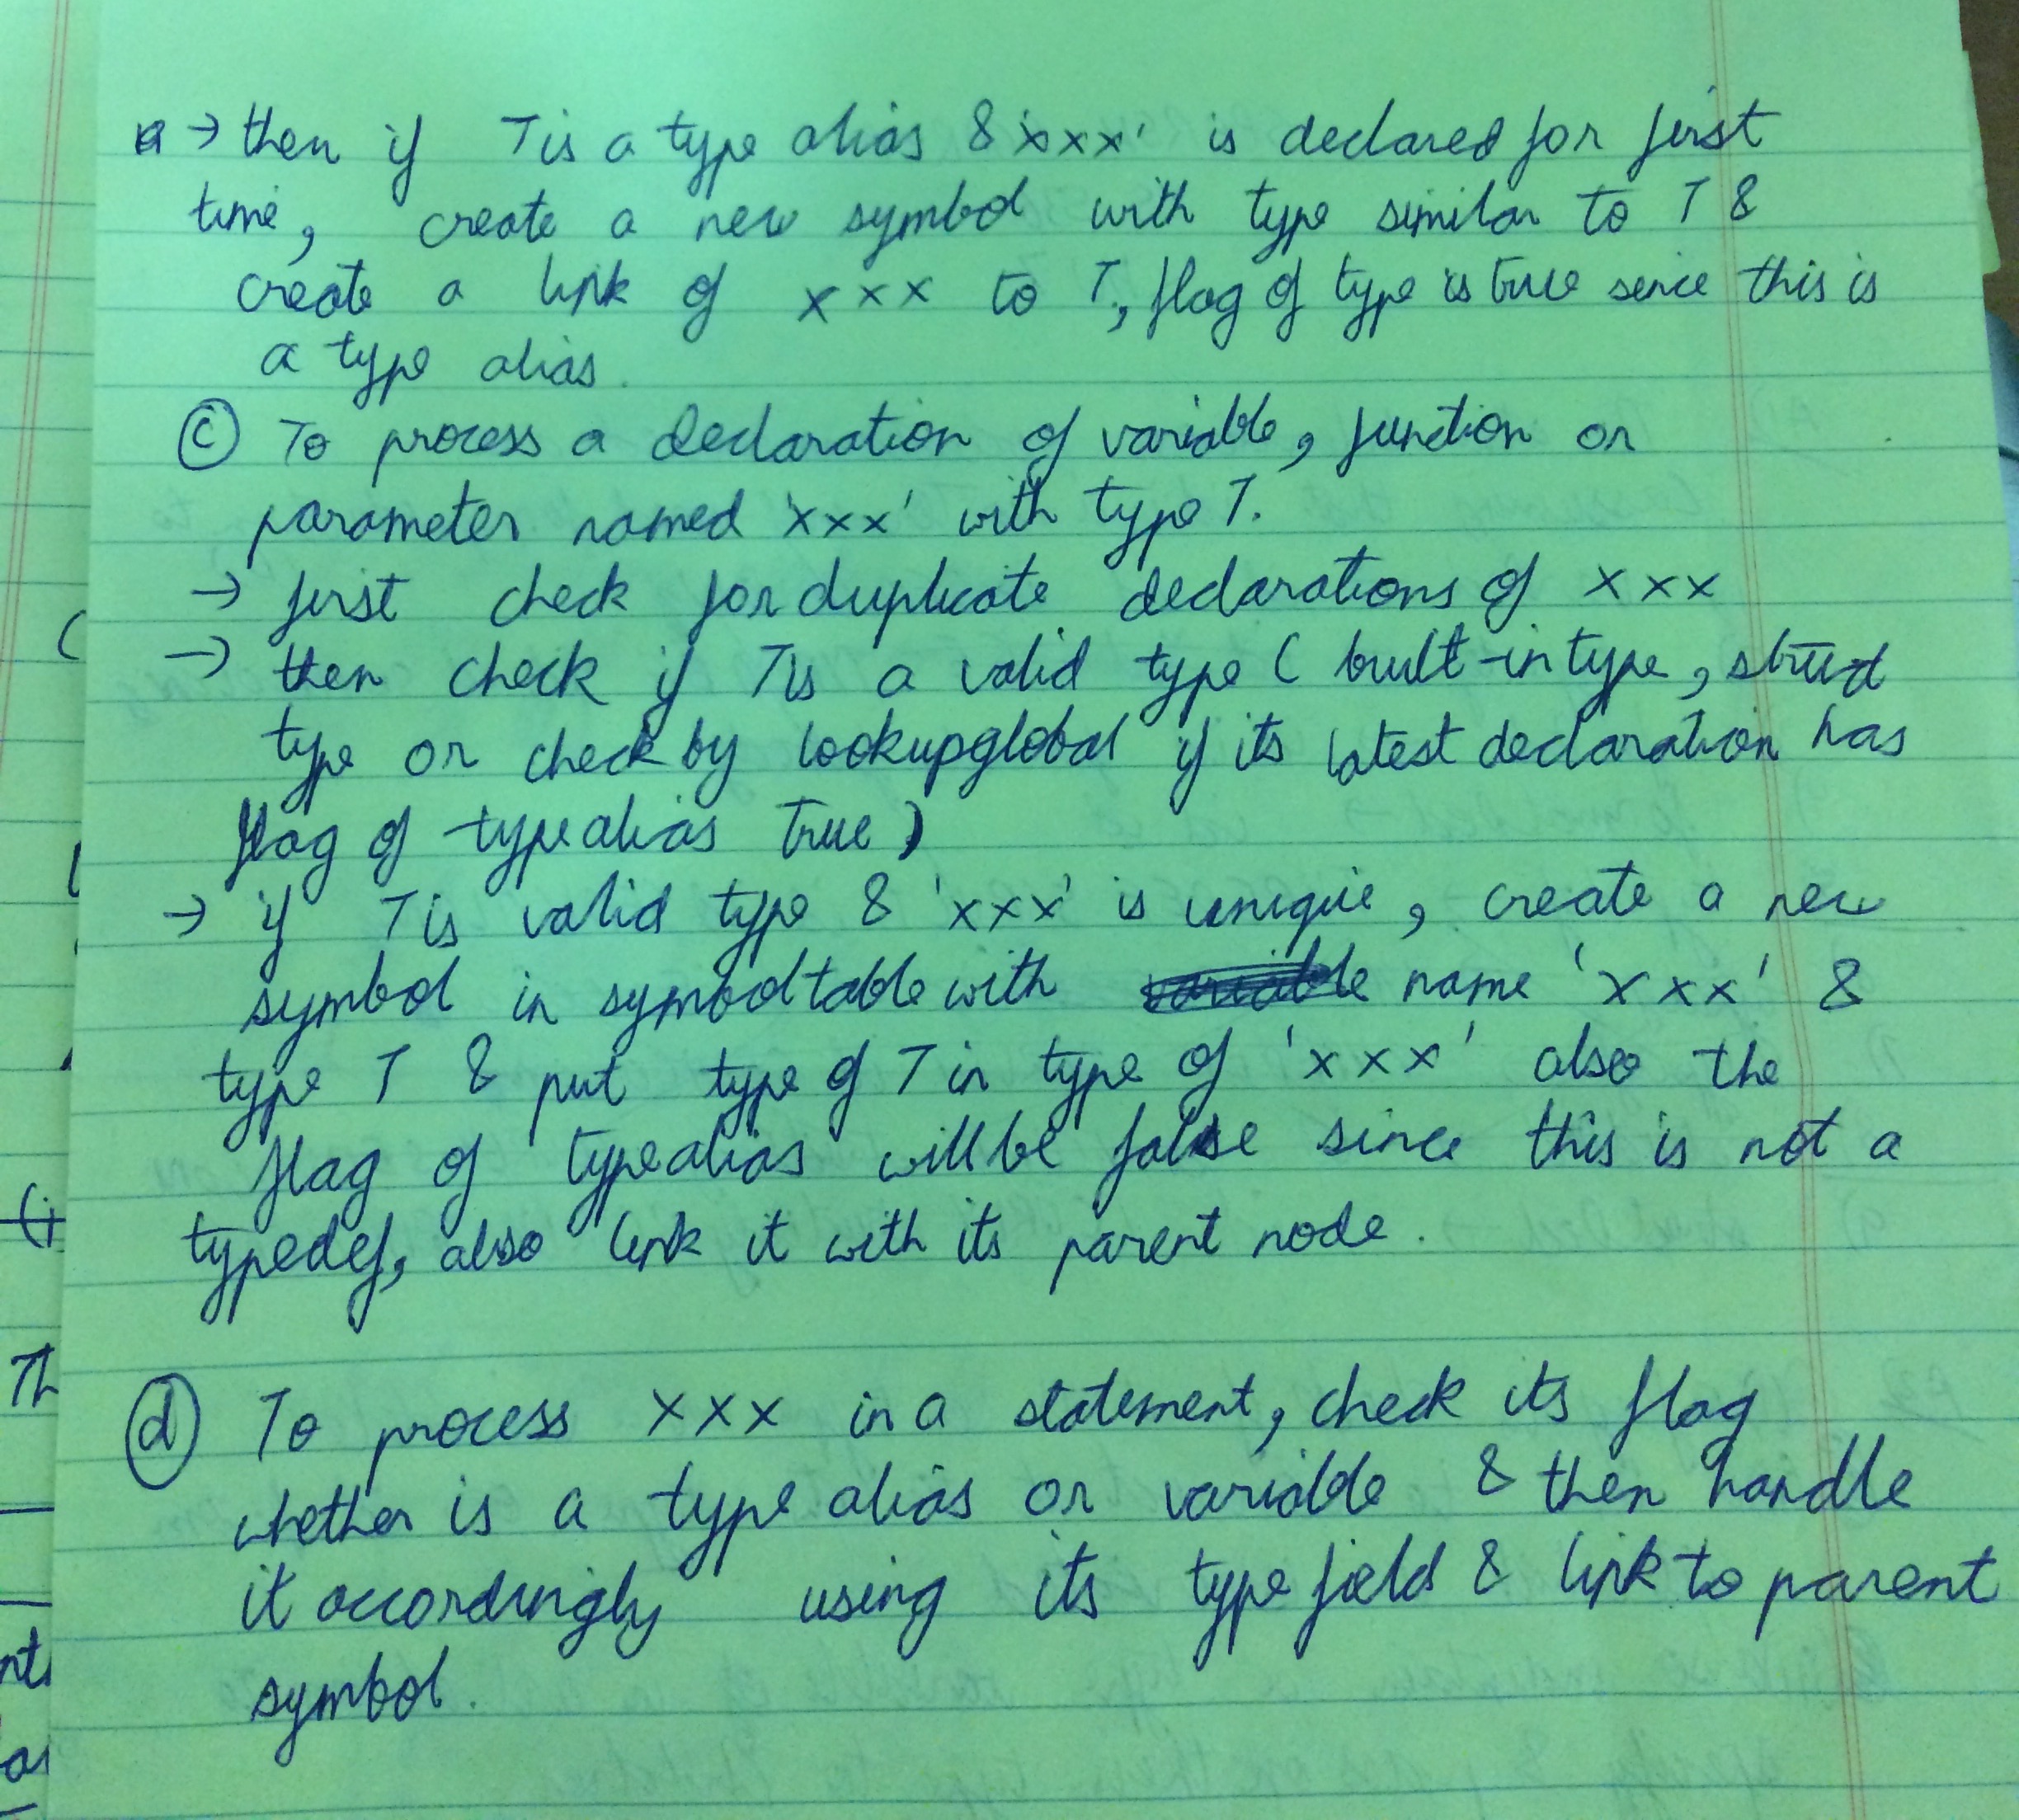 → then if T is a type alias & 'xxx' is declared for first
time, create a new symbol with type similar to T &
create a link of xxx to T, flag of type is true sence this is
a type alias.
(c) To process a declaration of variable, function or
parameter named 'xxx' with type T.
→ first check for duplicate declarations of xxx
→ then check if T is a valid type ( built-in type, struct
type or check by lookupglobal if its latest declaration has
flag of typealias True)
→ if T is valid type & 'xxx' is unique, create a new
symbol in symboltable with name 'xxx' &
type T & put type of T in type of 'xxx' also the
flag of typealias will be false since this is not a
typedef, also link it with its parent node.
(d) To process xxx in a statement, check its flag
whether is a type alias or variable & then handle
it accordingly using its type field & link to parent
symbol.
(
(i
Th
nt